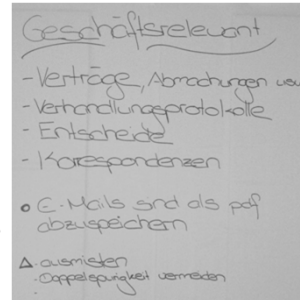 Geschäftsrelevant
- Verträge, Abmachungen usw
- Verhandlungsprotokolle
- Entscheide
- Korrespondenzen
• E-Mails sind als pdf
abzuspeichern
△. ausmisten
. Doppelspurigkeit vermeiden